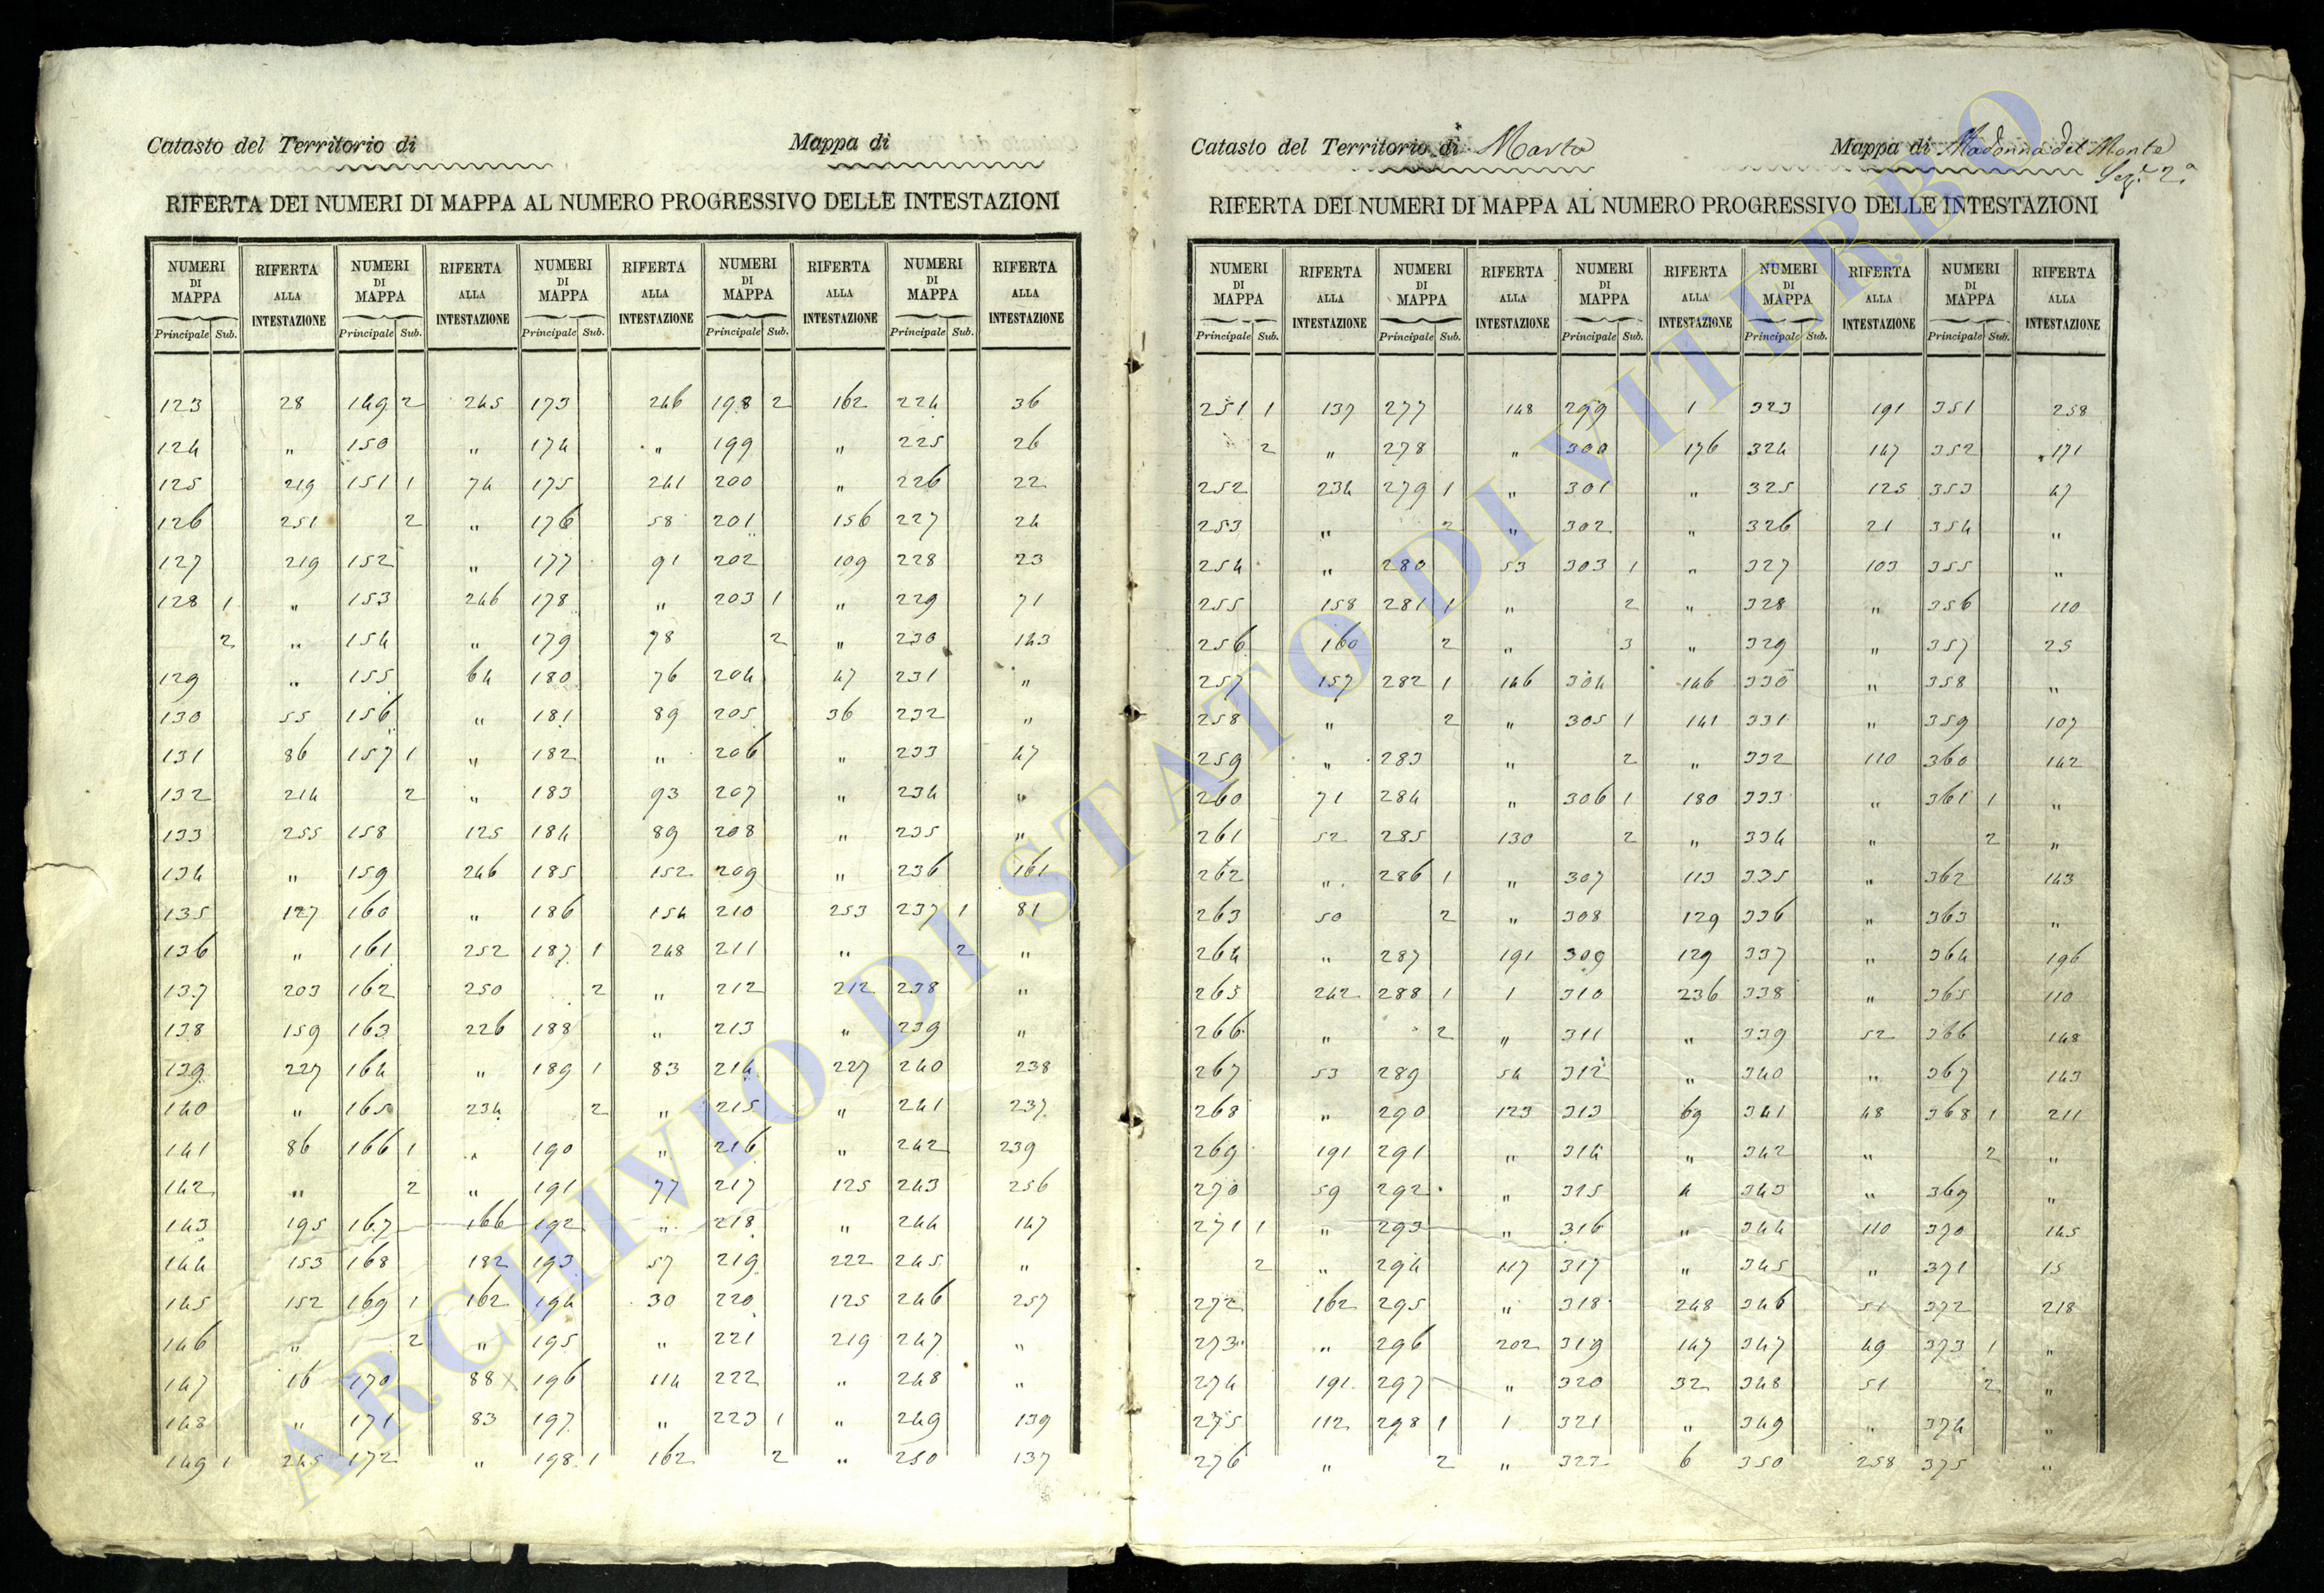 Catasto del Territorio di Mappa di
RIFERTA DEI NUMERI DI MAPPA AL NUMERO PROGRESSIVO DELLE INTESTAZIONI
NUMERI DI MAPPA RIFERTA ALLA INTESTAZIONE NUMERI DI MAPPA RIFERTA ALLA INTESTAZIONE NUMERI DI MAPPA RIFERTA ALLA INTESTAZIONE NUMERI DI MAPPA RIFERTA ALLA INTESTAZIONE NUMERI DI MAPPA RIFERTA ALLA INTESTAZIONE
Principale Sub. Principale Sub. Principale Sub. Principale Sub. Principale Sub.
123 28 149 2 245 173 246 198 2 162 224 36
124 " 150 " 174 " 199 " 225 26
125 219 151 1 74 175 241 200 " 226 22
126 251 2 " 176 58 201 156 227 24
127 219 152 " 177 91 202 109 228 23
128 1 " 153 246 178 " 203 1 " 229 71
2 " 154 " 179 78 2 " 230 143
129 " 155 64 180 76 204 47 231 "
130 55 156 " 181 89 205 36 232 "
131 86 157 1 " 182 " 206 " 233 47
132 214 2 " 183 93 207 " 234 "
133 255 158 125 184 89 208 " 235 "
134 " 159 246 185 152 209 " 236 161
135 127 160 " 186 154 210 253 237 1 81
136 " 161 252 187 1 248 211 " 2 "
137 203 162 250 2 " 212 212 238 "
138 159 163 226 188 " 213 " 239 "
139 227 164 " 189 1 83 214 227 240 238
140 " 165 234 2 " 215 " 241 237
141 86 166 1 " 190 " 216 " 242 239
142 " 2 " 191 77 217 125 243 256
143 195 167 166 192 " 218 " 244 147
144 153 168 182 193 57 219 222 245 "
145 152 169 1 162 194 30 220 125 246 257
146 " 2 " 195 " 221 219 247 "
147 16 170 88 196 114 222 " 248 "
148 " 171 83 197 " 223 1 " 249 139
149 1 245 172 " 198 1 162 2 " 250 137
Catasto del Territorio di Marta Mappa di Madonna del Monte
Sez. 2a
RIFERTA DEI NUMERI DI MAPPA AL NUMERO PROGRESSIVO DELLE INTESTAZIONI
NUMERI DI MAPPA RIFERTA ALLA INTESTAZIONE NUMERI DI MAPPA RIFERTA ALLA INTESTAZIONE NUMERI DI MAPPA RIFERTA ALLA INTESTAZIONE NUMERI DI MAPPA RIFERTA ALLA INTESTAZIONE NUMERI DI MAPPA RIFERTA ALLA INTESTAZIONE
Principale Sub. Principale Sub. Principale Sub. Principale Sub. Principale Sub.
251 1 137 277 148 299 1 323 191 351 258
2 " 278 " 300 176 324 147 352 171
252 234 279 1 " 301 " 325 125 353 47
253 " 2 " 302 " 326 21 354 "
254 " 280 53 303 1 " 327 103 355 "
255 158 281 1 " 2 " 328 " 356 110
256 160 2 " 3 " 329 " 357 25
257 157 282 1 146 304 146 330 " 358 "
258 " 2 " 305 1 141 331 " 359 107
259 " 283 " 2 " 332 110 360 142
260 71 284 " 306 1 180 333 " 361 1 "
261 52 285 130 2 " 334 " 2 "
262 " 286 1 " 307 113 335 " 362 143
263 50 2 " 308 129 336 " 363 "
264 " 287 191 309 129 337 " 364 196
265 242 288 1 1 310 236 338 " 365 110
266 " 2 " 311 " 339 52 366 148
267 53 289 54 312 " 340 " 367 143
268 " 290 123 313 69 341 48 368 1 211
269 191 291 " 314 " 342 " 2 "
270 59 292 " 315 4 343 " 369 "
271 1 " 293 " 316 " 344 110 370 145
2 " 294 117 317 " 345 " 371 15
272 162 295 " 318 248 346 51 372 218
273 " 296 202 319 147 347 49 373 1 "
274 191 297 " 320 32 348 51 2 "
275 112 298 1 1 321 " 349 " 374 "
276 " 2 " 322 6 350 258 375 "
ARCHIVIO DI STATO DI VITERBO